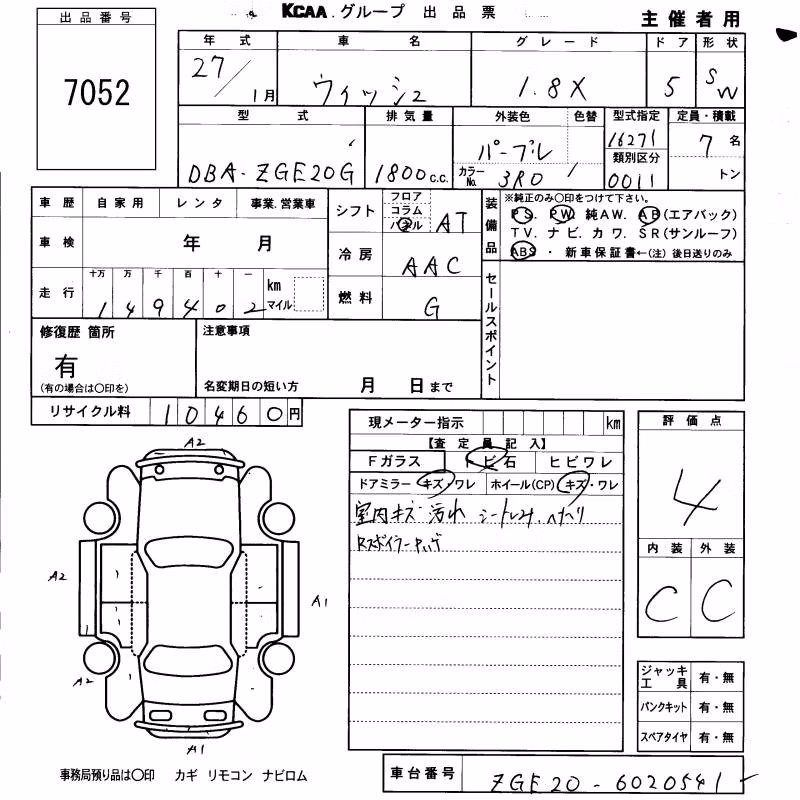 KCAA グループ 出品票
主催者用
出品番号
7052
年式 車名 グレード ドア 形状
27/1月 ウィッシュ 1.8X 5 SW
型式 排気量 外装色 色替 型式指定 定員・積載
DBA-ZGE20G 1800c.c. パープル 16271 7名
カラーNo. 3R0 類別区分 0011 トン
車歴 自家用 レンタ 事業.営業車
車検 年 月
走行 十万 万 千 百 十 一 km マイル
149402
シフト フロア コラム パネル AT
冷房 AAC
燃料 G
装備品 ※純正のみ○印をつけて下さい。
PS. PW. 純AW. AB(エアバック)
TV. ナビ. カワ. SR(サンルーフ)
ABS ・ 新車保証書←(注)後日送りのみ
セールスポイント
修復歴 箇所
有
(有の場合は○印を)
注意事項
名変期日の短い方 月 日まで
リサイクル料 10460円
現メーター指示 km
【査定員記入】
Fガラス トビ石 ヒビワレ
ドアミラー キズ・ワレ ホイール(CP) キズ・ワレ
室内キズ 汚れ シートスレ
評価点
4
内装 外装
C C
A2
A2
A1
A2
A1
ジャッキ工具 有・無
パンクキット 有・無
スペアタイヤ 有・無
事務局預り品は○印 カギ リモコン ナビロム
車台番号 ZGE20-6020541